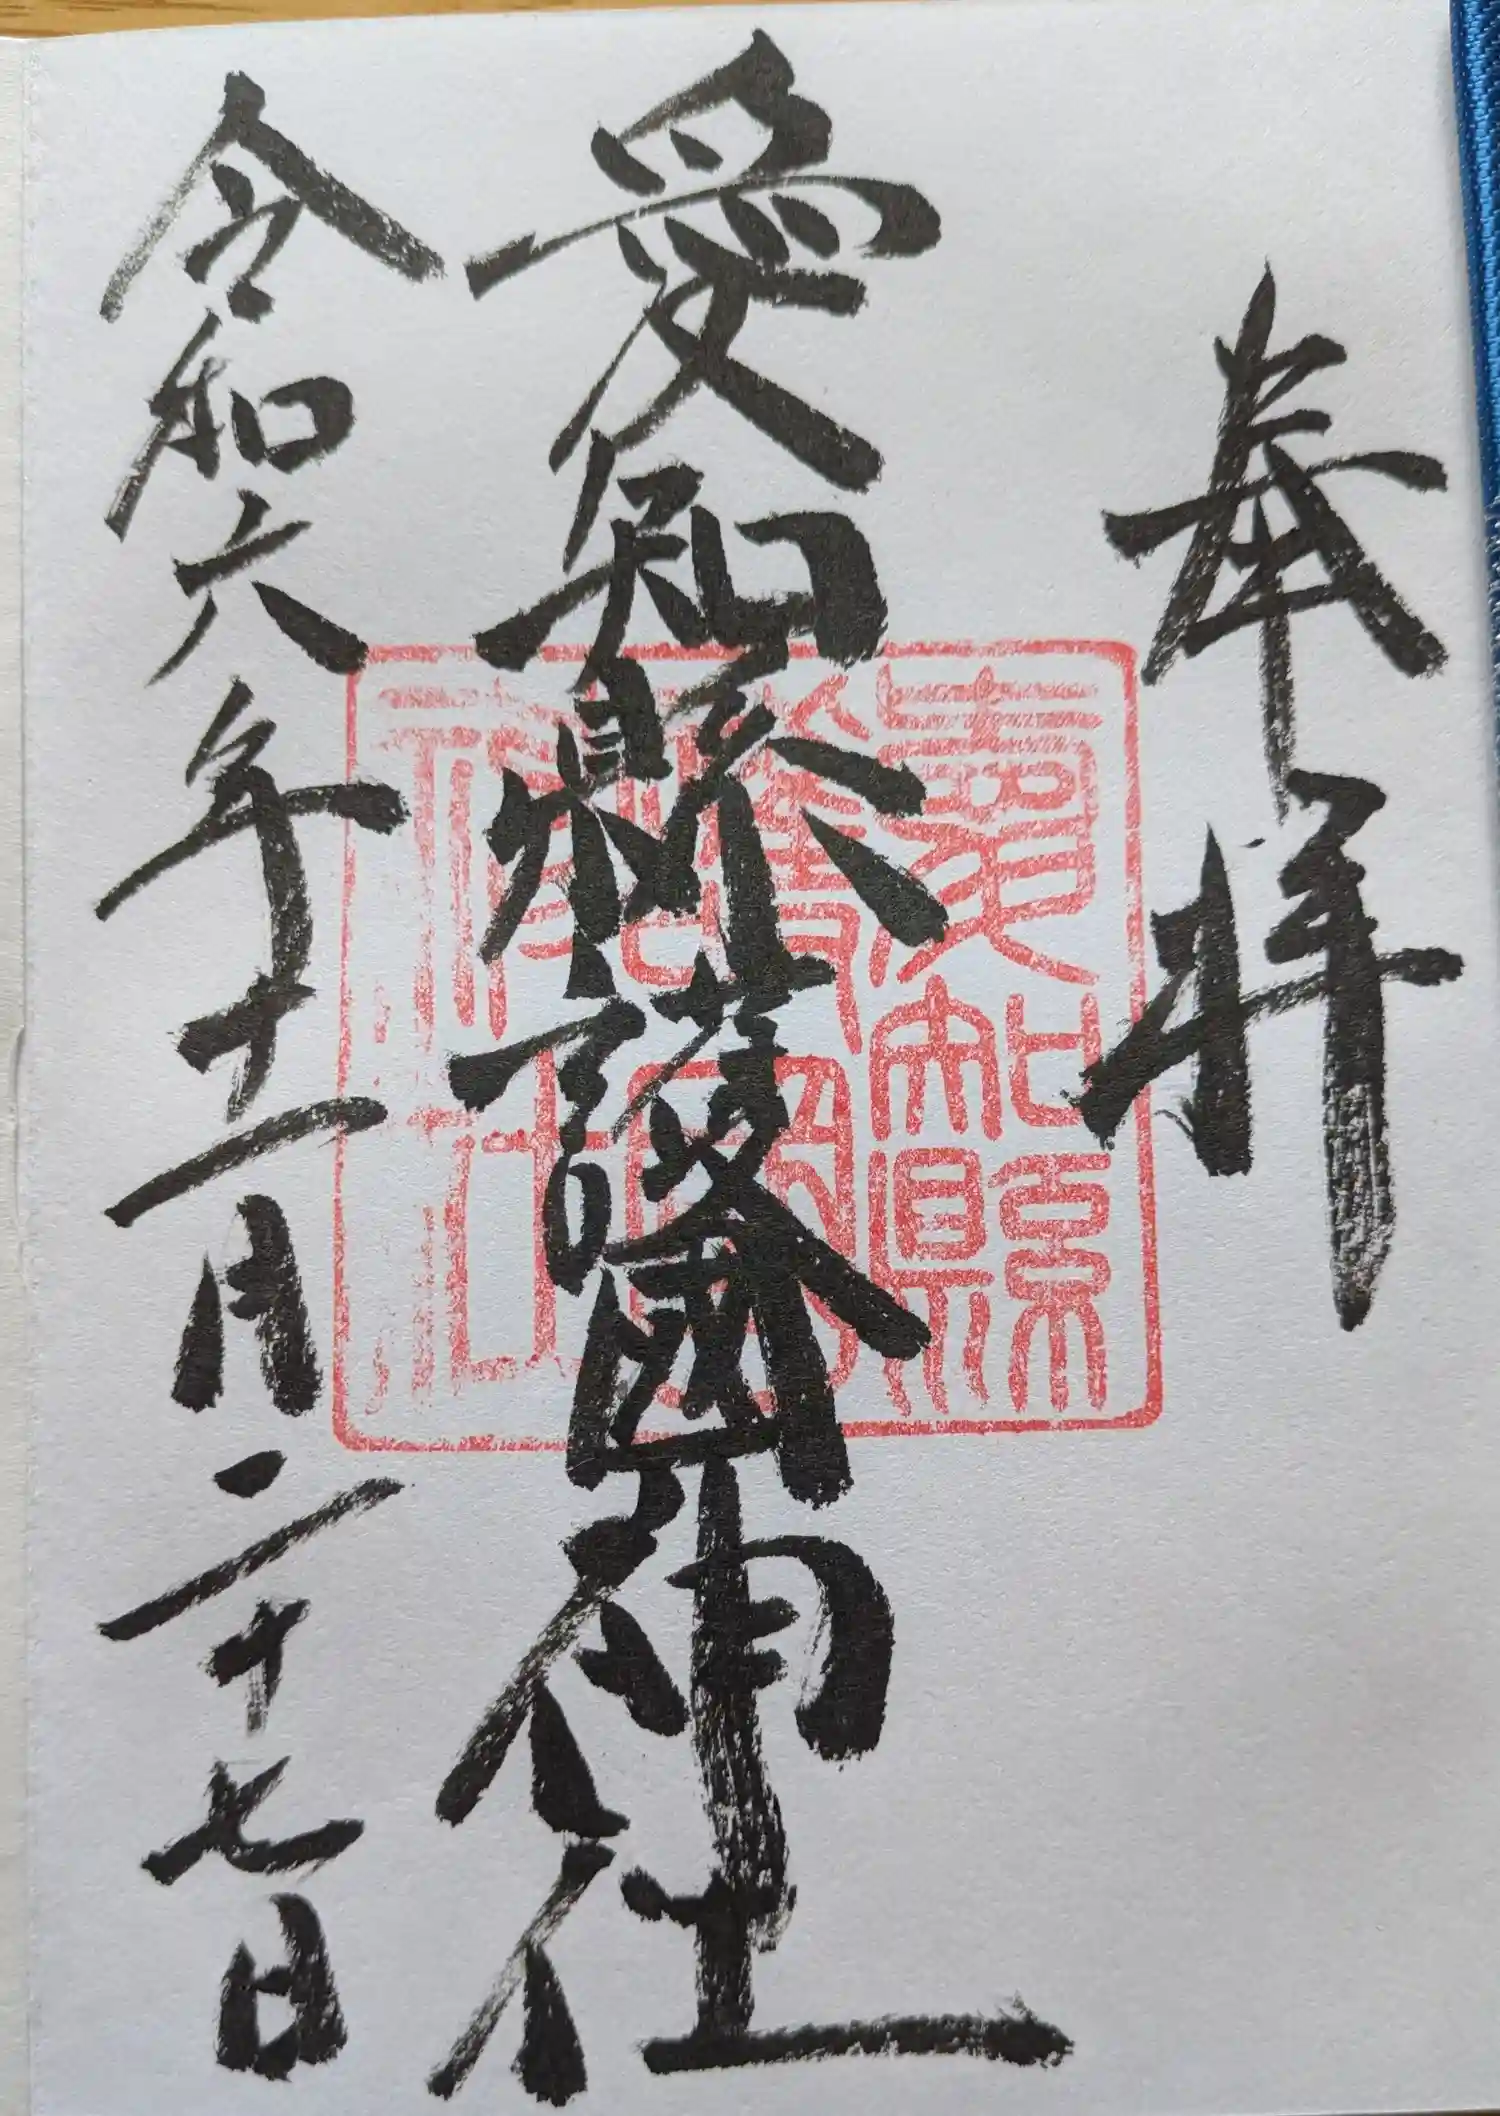 奉拝
愛知縣護國神社
令和六年十一月二十七日
愛知縣
護國
神社